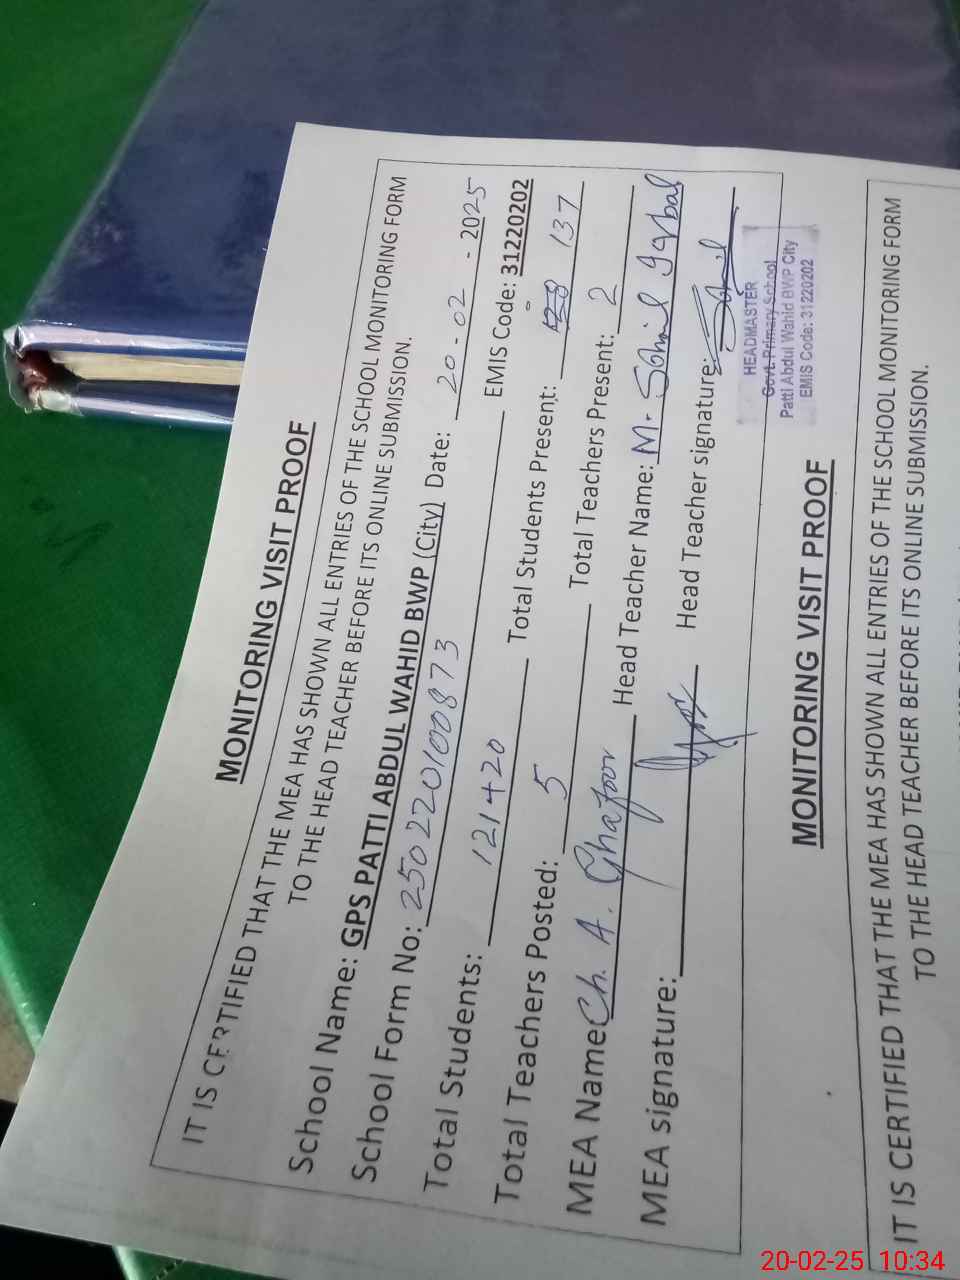 MONITORING VISIT PROOF
IT IS CERTIFIED THAT THE MEA HAS SHOWN ALL ENTRIES OF THE SCHOOL MONITORING FORM
TO THE HEAD TEACHER BEFORE ITS ONLINE SUBMISSION.
School Name: GPS PATTI ABDUL WAHID BWP (City) Date: 20-02-2025
School Form No: 250220100873 EMIS Code: 31220202
Total Students: 121420 Total Students Present: 137
Total Teachers Posted: 5 Total Teachers Present: 2
MEA Name: Ch. A. Ghafoor Head Teacher Name: M. Sohail Iqbal
MEA signature: Head Teacher signature:
HEADMASTER
Govt. Primary School
Patti Abdul Wahid BWP City
EMIS Code: 31220202
MONITORING VISIT PROOF
IT IS CERTIFIED THAT THE MEA HAS SHOWN ALL ENTRIES OF THE SCHOOL MONITORING FORM
TO THE HEAD TEACHER BEFORE ITS ONLINE SUBMISSION.
20-02-25 10:34